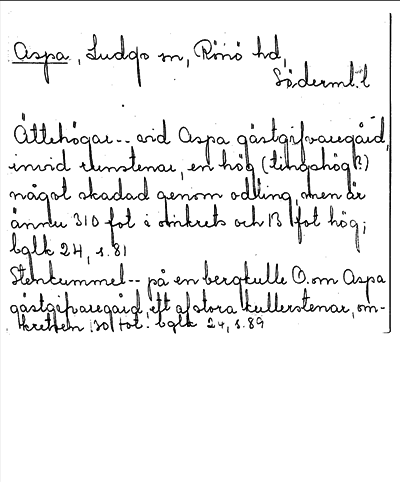 Aspa, Ludgo sn, Rönö hd,
Söderml. l
Ättehögar -- vid Aspa gästgifvaregård,
invid runstenar, en hög (tingshög?)
något skadad genom odling, men är
ännu 310 fot i omkrets och 13 fot hög;
bglk 24, s. 81
Stenkummel -- på en bergkulle O. om Aspa
gästgifvaregård, ett af stora kullerstenar, om-
kretsen 130 fot. bglk 24, s. 89